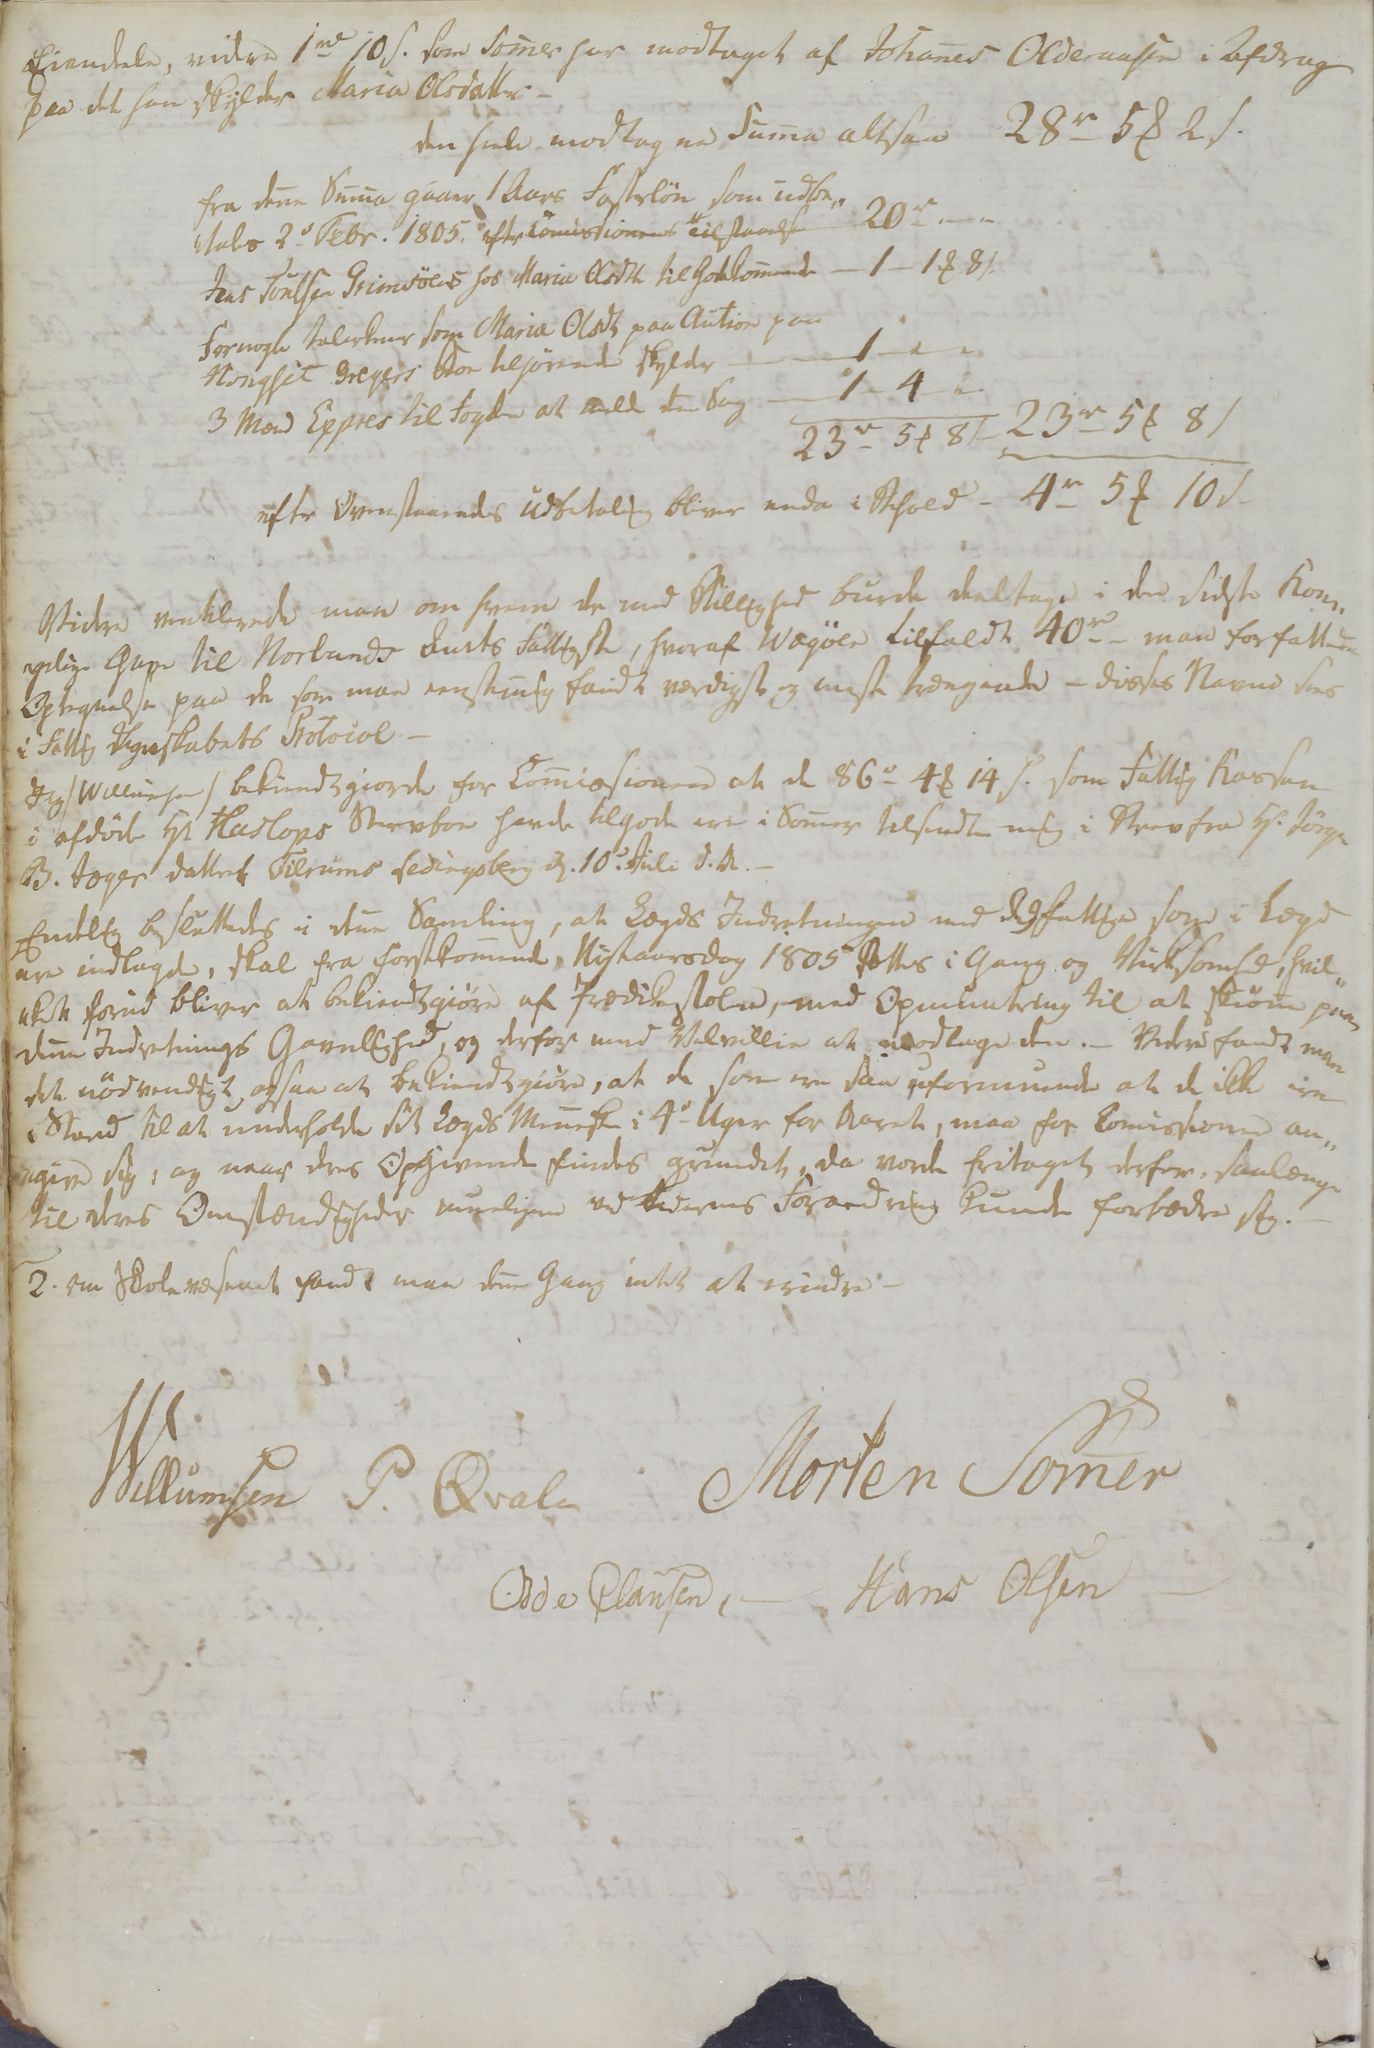 Eiendele, videre 1 mk 10 s. som Somer har modtaget af Johannes Olderaasen i Afdrag
paa det han skylder Maria Olsdatter —
den hele modtagne Suma altsaa 28 r 5 ƶ 2 s.
fra dene Suma gaaer 1 Aars Fosterløn som udbe„
tales 2d Febr. 1805. efter Comissionens Tilstaaelse — 20 r — "
Jens Poulsen Grimsöens hos Maria Olsdt til Godekommende — 1 — 1 ƶ 8 s.
For nogle talerkner som Maria Olsdt paa Aution paa
Kongset Dreyers Boe tilhørende skylder — 1 — " — "
3 Mænd Expres til Fogden at melde den Sag — 1 — 4 — "
23 r 5 ƶ 8 s — 23 r 5 ƶ 8 s
efter Ovenstaaendes Udbetaling bliver enda i Behold — 4 r 5 ƶ 10 s —
Videre ventilerede man om hvem der med Billighed burde deeltage i den sidste Kon„
gelige Gave til Norlands Amts Fattigste, hvoraf Wægöe tilfaldt 40 r — man forfattede
Optegnelse paa de som man eenstemig fandt værdigst og meest trængende — disses Navne sees
i Fattig Regnskabets Protocol —
Jeg /Willumsen/ bekiendtgiorde for Commissionen at de 86 r 4 ƶ 14 s. som Fattig Kassen
i afdöde Hr Haslops Stervboe havde tilgode ere i Somer tilsendte mig i Brev fra Hr. Jörgen
B. Jæger datteret Tilrums Ledingsberg d. 10de Juli d. A. —
Endelig besluttedes i dene Samling, at Lægds Indretningen med de Fattige som i Lægd
ere indlagde, skal fra förstkomende Nytaarsdag 1805 settes i Gang og Virksomhed, hvil„
ket forud bliver at bekiendtgiöre af Prædikestolen, med Opmuntring til at skiöne paa
dene Indretnings Gavnlighed, og derfor med Velvillie at modtage den. — Videre fandt man
det nödvendigt, ogsaa at bekiendtgiöre, at de som ere saa uformuende at de ikke ere
i Stand til at underholde sit Lægds Meneske i 4re Uger for Aaret, maa for Comissionen an„
give sig, og naar deres Opgivende findes grundet, da vorde fritaget derfor, saalænge
til deres Omstændigheder mueligen ved Tidernes Forandring kunde forbedre sig. —
2. om Skolevæsenet fandt man dene Gang intet at erindre —
Willumsen P. Qvale Morten Somer
Odde Clausen, — Hans Olsen —